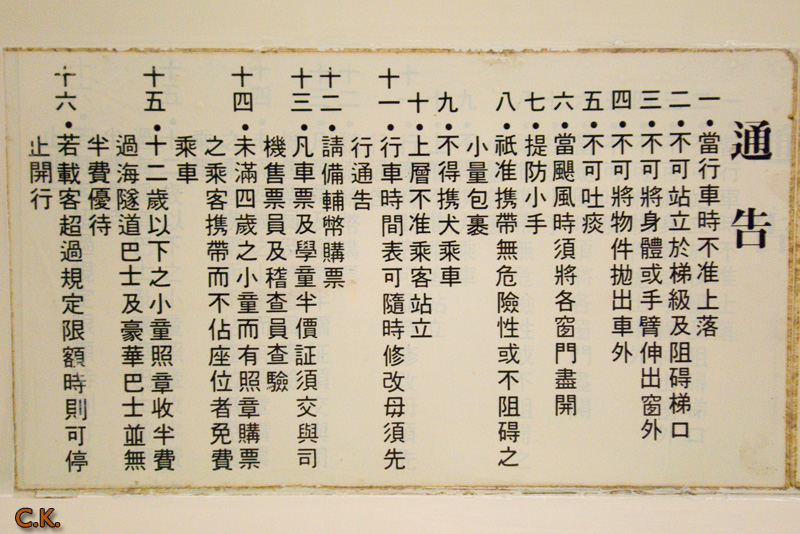 通告
一•當行車時不准上落
二•不可站立於梯級及阻碍梯口
三•不可將身體或手臂伸出窗外
四•不可將物件拋出車外
五•不可吐痰
六•當颶風時須將各窗門盡開
七•提防小手
八•祇准携帶無危險性或不阻碍之
小量包裹
九•不得携犬乘車
十•上層不准乘客站立
十一•行車時間表可隨時修改毋須先
行通告
十二•請備輔幣購票
十三•凡車票及學童半價証須交與司
機售票員及稽查員查驗
十四•未滿四歲之小童而有照章購票
之乘客携帶而不佔座位者免費
乘車
十五•十二歲以下之小童照章收半費
過海隧道巴士及豪華巴士並無
半費優待
十六•若載客超過規定限額時則可停
止開行
C.K.